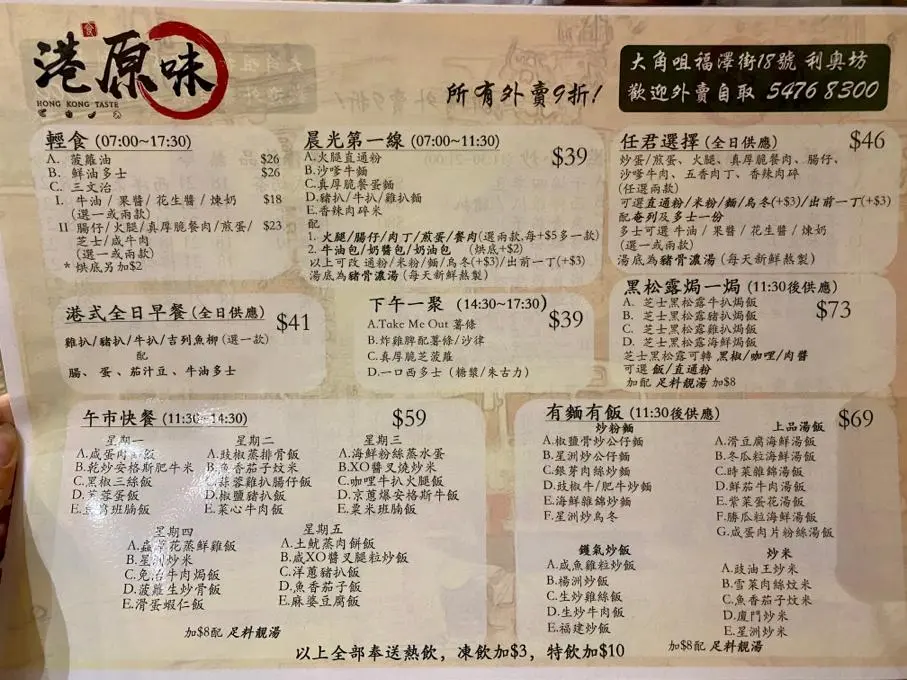 食
港原味
HONG KONG TASTE
所有外賣9折!
大角咀福澤街18號 利奧坊
歡迎外賣自取 5476 8300
輕食 (07:00~17:30)
A. 菠蘿油 $26
B. 鮮油多士 $26
C. 三文治
I. 牛油 / 果醬 / 花生醬 / 煉奶 $18
(選一或兩款)
II 腸仔/火腿/真厚脆餐肉/煎蛋/ $23
芝士/咸牛肉
(選一或兩款)
* 烘底另加$2
晨光第一線 (07:00~11:30) $39
A.火腿直通粉
B.沙嗲牛麵
C.真厚脆餐蛋麵
D.豬扒/牛扒/雞扒麵
E.香辣肉碎米
配
1. 火腿/腸仔/肉丁/煎蛋/餐肉(選兩款,每+$5多一款)
2. 牛油包/奶醬包/奶油包 (烘底+$2)
以上可改 通粉/米粉/麵/烏冬(+$3)/出前一丁(+$3)
湯底為豬骨濃湯 (每天新鮮熬製)
任君選擇 (全日供應) $46
炒蛋/煎蛋、火腿、真厚脆餐肉、腸仔、
沙嗲牛肉、五香肉丁、香辣肉碎
(任選兩款)
可選直通粉/米粉/麵/烏冬(+$3)/出前一丁(+$3)
配奄列及多士一份
多士可選 牛油 / 果醬 / 花生醬 / 煉奶
(選一或兩款)
湯底為豬骨濃湯 (每天新鮮熬製)
港式全日早餐 (全日供應) $41
雞扒/豬扒/牛扒/吉列魚柳 (選一款)
配
腸、蛋、茄汁豆、牛油多士
下午一聚 (14:30~17:30) $39
A.Take Me Out 薯條
B.炸雞脾配薯條/沙律
C.真厚脆芝菠蘿
D.一口西多士 (糖漿/朱古力)
黑松露焗一焗 (11:30後供應) $73
A. 芝士黑松露牛扒焗飯
B. 芝士黑松露豬扒焗飯
C. 芝士黑松露雞扒焗飯
D. 芝士黑松露海鮮焗飯
芝士黑松露可轉 黑椒/咖哩/肉醬
可選 飯/直通粉
加配 足料靚湯 加$8
午市快餐 (11:30~14:30) $59
星期一
A.咸蛋肉餅飯
B.乾炒安格斯肥牛米
C.黑椒三絲飯
D.芙蓉蛋飯
E.豆腐班腩飯
星期二
A.豉椒蒸排骨飯
B.魚香茄子炆米
C.蒜蓉雞扒腸仔飯
D.椒鹽豬扒飯
E.菜心牛肉飯
星期三
A.海鮮粉絲蒸水蛋
B.XO醬叉燒炒米
C.咖哩牛扒火腿飯
D.京蔥爆安格斯牛飯
E.粟米班腩飯
星期四
A.蟲草花蒸鮮雞飯
B.星洲炒米
C.免治牛肉焗飯
D.菠蘿生炒骨飯
E.滑蛋蝦仁飯
星期五
A.土魷蒸肉餅飯
B.咸XO醬叉腿粒炒飯
C.洋蔥豬扒飯
D.魚香茄子飯
E.麻婆豆腐飯
加$8配 足料靚湯
有麵有飯 (11:30後供應) $69
炒粉麵
A.椒鹽骨炒公仔麵
B.星洲炒公仔麵
C.銀芽肉絲炒麵
D.豉椒牛/肥牛炒麵
E.海鮮雜錦炒麵
F.星洲炒烏冬
上品湯飯
A.滑豆腐海鮮湯飯
B.冬瓜粒海鮮湯飯
C.時菜雜錦湯飯
D.鮮茄牛肉湯飯
E.紫菜蛋花湯飯
F.勝瓜粒海鮮湯飯
G.咸蛋肉片粉絲湯飯
鑊氣炒飯
A.咸魚雞粒炒飯
B.楊洲炒飯
C.生炒雞絲飯
D.生炒牛肉飯
E.福建炒飯
炒米
A.豉油王炒米
B.雪菜肉絲炆米
C.魚香茄子炆米
D.廈門炒米
E.星洲炒米
加$8配 足料靚湯
以上全部奉送熱飲，凍飲加$3，特飲加$10